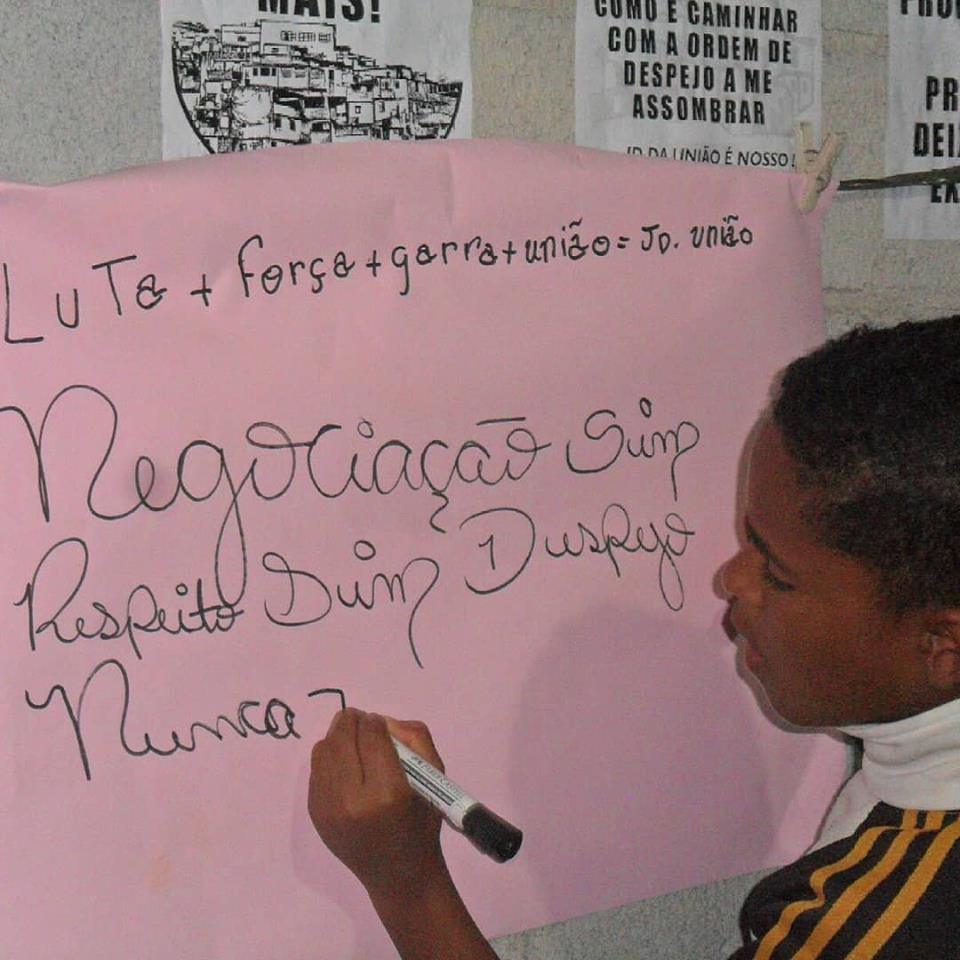 MAIS!
COMO É CAMINHAR
COM A ORDEM DE
DESPEJO A ME
ASSOMBRAR
JD DA UNIÃO É NOSSO!
PR
DEI
EX
LuTa + força + garra + união = JD. união
Negociação Sim
Respeito Sim Despejo
Nunca